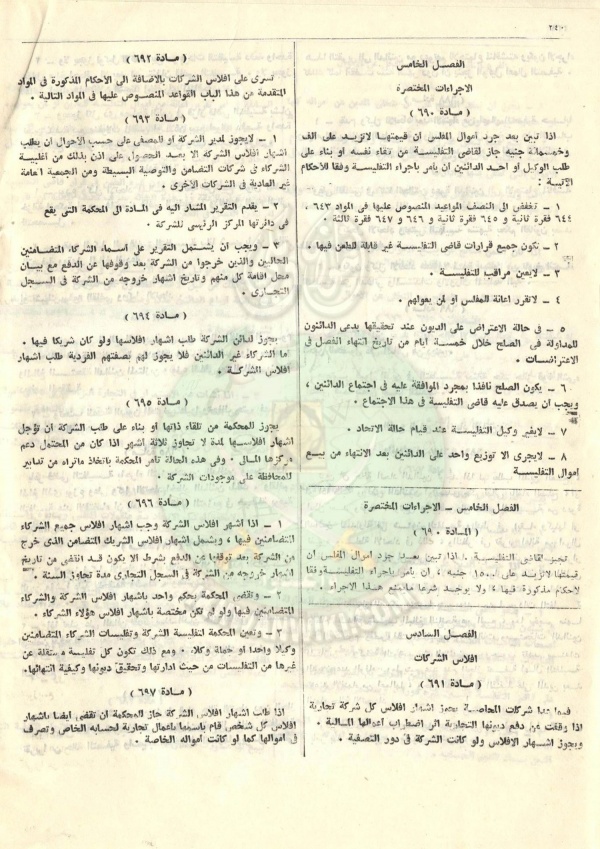 ٢٠٤
الفصل الخامس
الاجراءات المختصرة
( مادة ٦٩٠ )
اذا تبين بعد جرد أموال المفلس أن قيمتها لاتزيد على الف
وخمسمائة جنيه جاز لقاضى التفليسة من تلقاء نفسه أو بناء على
طلب الوكيل أو أحد الدائنين أن يأمر باجراء التفليسة وفقا للأحكام
الآتية :
١ – تخفض الى النصف المواعيد المنصوص عليها فى المواد ٦٤٣ ،
٦٤٤ فقرة ثانية و ٦٤٥ فقرة ثانية و ٦٤٦ و ٦٤٧ فقرة ثالثة .
٢ – تكون جميع قرارات قاضى التفليسة غير قابلة للطعن فيها .
٣ – لايعين مراقب للتفليسة .
٤ – لاتقرر اعانة للمفلس أو لمن يعولهم .
٥ – فى حالة الاعتراض على الديون عند تحقيقها يدعى الدائنون
للمداولة فى الصلح خلال خمسة أيام من تاريخ انتهاء الفصل فى
الاعتراضات .
٦ – يكون الصلح نافذا بمجرد الموافقة عليه فى اجتماع الدائنين ،
ويجب أن يصدق عليه قاضى التفليسة فى هذا الاجتماع .
٧ – لايغير وكيل التفليسة عند قيام حالة الاتحاد .
٨ – لايجرى الا توزيع واحد على الدائنين بعد الانتهاء من بيع
اموال التفليسة
الفصل الخامس – الاجراءات المختصرة
( المادة ٦٩٠
تجيز لقاضى التفليسة ، اذا تبين بعد جرد أموال المفلس أن
قيمتها لاتزيد على ١٥٠٠ جنيه ، أن يأمر باجراء التفليسة وفقا
لأحكام مذكورة فيها ، ولا يوجد شرعا مايمنع هذا الاجراء .
الفصل السادس
افلاس الشركات
( مادة ٦٩١ )
فيما عدا شركات المحاصة يجوز اشهار افلاس كل شركة تجارية
اذا وقفت عن دفع ديونها التجارية اثر اضطراب أعمالها المالية .
ويجوز اشهار الافلاس ولو كانت الشركة فى دور التصفية .
( مادة ٦٩٢ )
تسرى على افلاس الشركات بالاضافة الى الأحكام المذكورة فى المواد
المتقدمة من هذا الباب القواعد المنصوص عليها فى المواد التالية .
( مادة ٦٩٣ )
١ – لايجوز لمدير الشركة أو المصفى على حسب الأحوال أن يطلب
اشهار افلاس الشركة الا بعد الحصول على اذن بذلك من أغلبية
الشركاء فى شركات التضامن والتوصية البسيطة ومن الجمعية العامة
غير العادية فى الشركات الأخرى .
٢ – يقدم التقرير المشار اليه فى المادة الى المحكمة التى يقع
فى دائرتها المركز الرئيسى للشركة .
٣ – ويجب أن يشتمل التقرير على أسماء الشركاء المتضامنين
الحاليين والذين خرجوا من الشركة بعد وقوفها عن الدفع مع بيان
محل اقامة كل منهم وتاريخ اشهار خروجه من الشركة فى السجل
التجارى .
( مادة ٦٩٤ )
يجوز لدائن الشركة طلب اشهار افلاسها ولو كان شريكا فيها .
أما الشركاء غير الدائنين فلا يجوز لهم بصفتهم الفردية طلب اشهار
افلاس الشركة .
( مادة ٦٩٥ )
يجوز للمحكمة من تلقاء ذاتها أو بناء على طلب الشركة أن تؤجل
اشهار افلاسها لمدة لا تجاوز ثلاثة أشهر اذا كان من المحتمل دعم
مركزها المالى . وفى هذه الحالة تأمر المحكمة باتخاذ ماتراه من تدابير
للمحافظة على موجودات الشركة .
( مادة ٦٩٦ )
١ – اذا أشهر افلاس الشركة وجب اشهار افلاس جميع الشركاء
المتضامنين فيها ، ويشمل اشهار افلاس الشريك المتضامن الذى خرج
من الشركة بعد توقفها عن الدفع بشرط الا يكون قد انقضى من تاريخ
اشهار خروجه من الشركة فى السجل التجارى مدة تجاوز السنة .
٢ – وتقضى المحكمة بحكم واحد باشهار افلاس الشركة والشركاء
المتضامنين فيها ولو لم تكن مختصة باشهار افلاس هؤلاء الشركاء .
٣ – وتعين المحكمة لتفليسة الشركة وتفليسات الشركاء المتضامنين
وكيلا واحدا أو جملة وكلاء . ومع ذلك تكون كل تفليسة مستقلة عن
غيرها من التفليسات من حيث ادارتها وتحقيق ديونها وكيفية انتهائها .
( مادة ٦٩٧ )
اذا طلب اشهار افلاس الشركة جاز للمحكمة أن تقضى أيضا باشهار
افلاس كل شخص قام باسمها باعمال تجارية لحسابه الخاص وتصرف
فى أموالها كما لو كانت أمواله الخاصة .